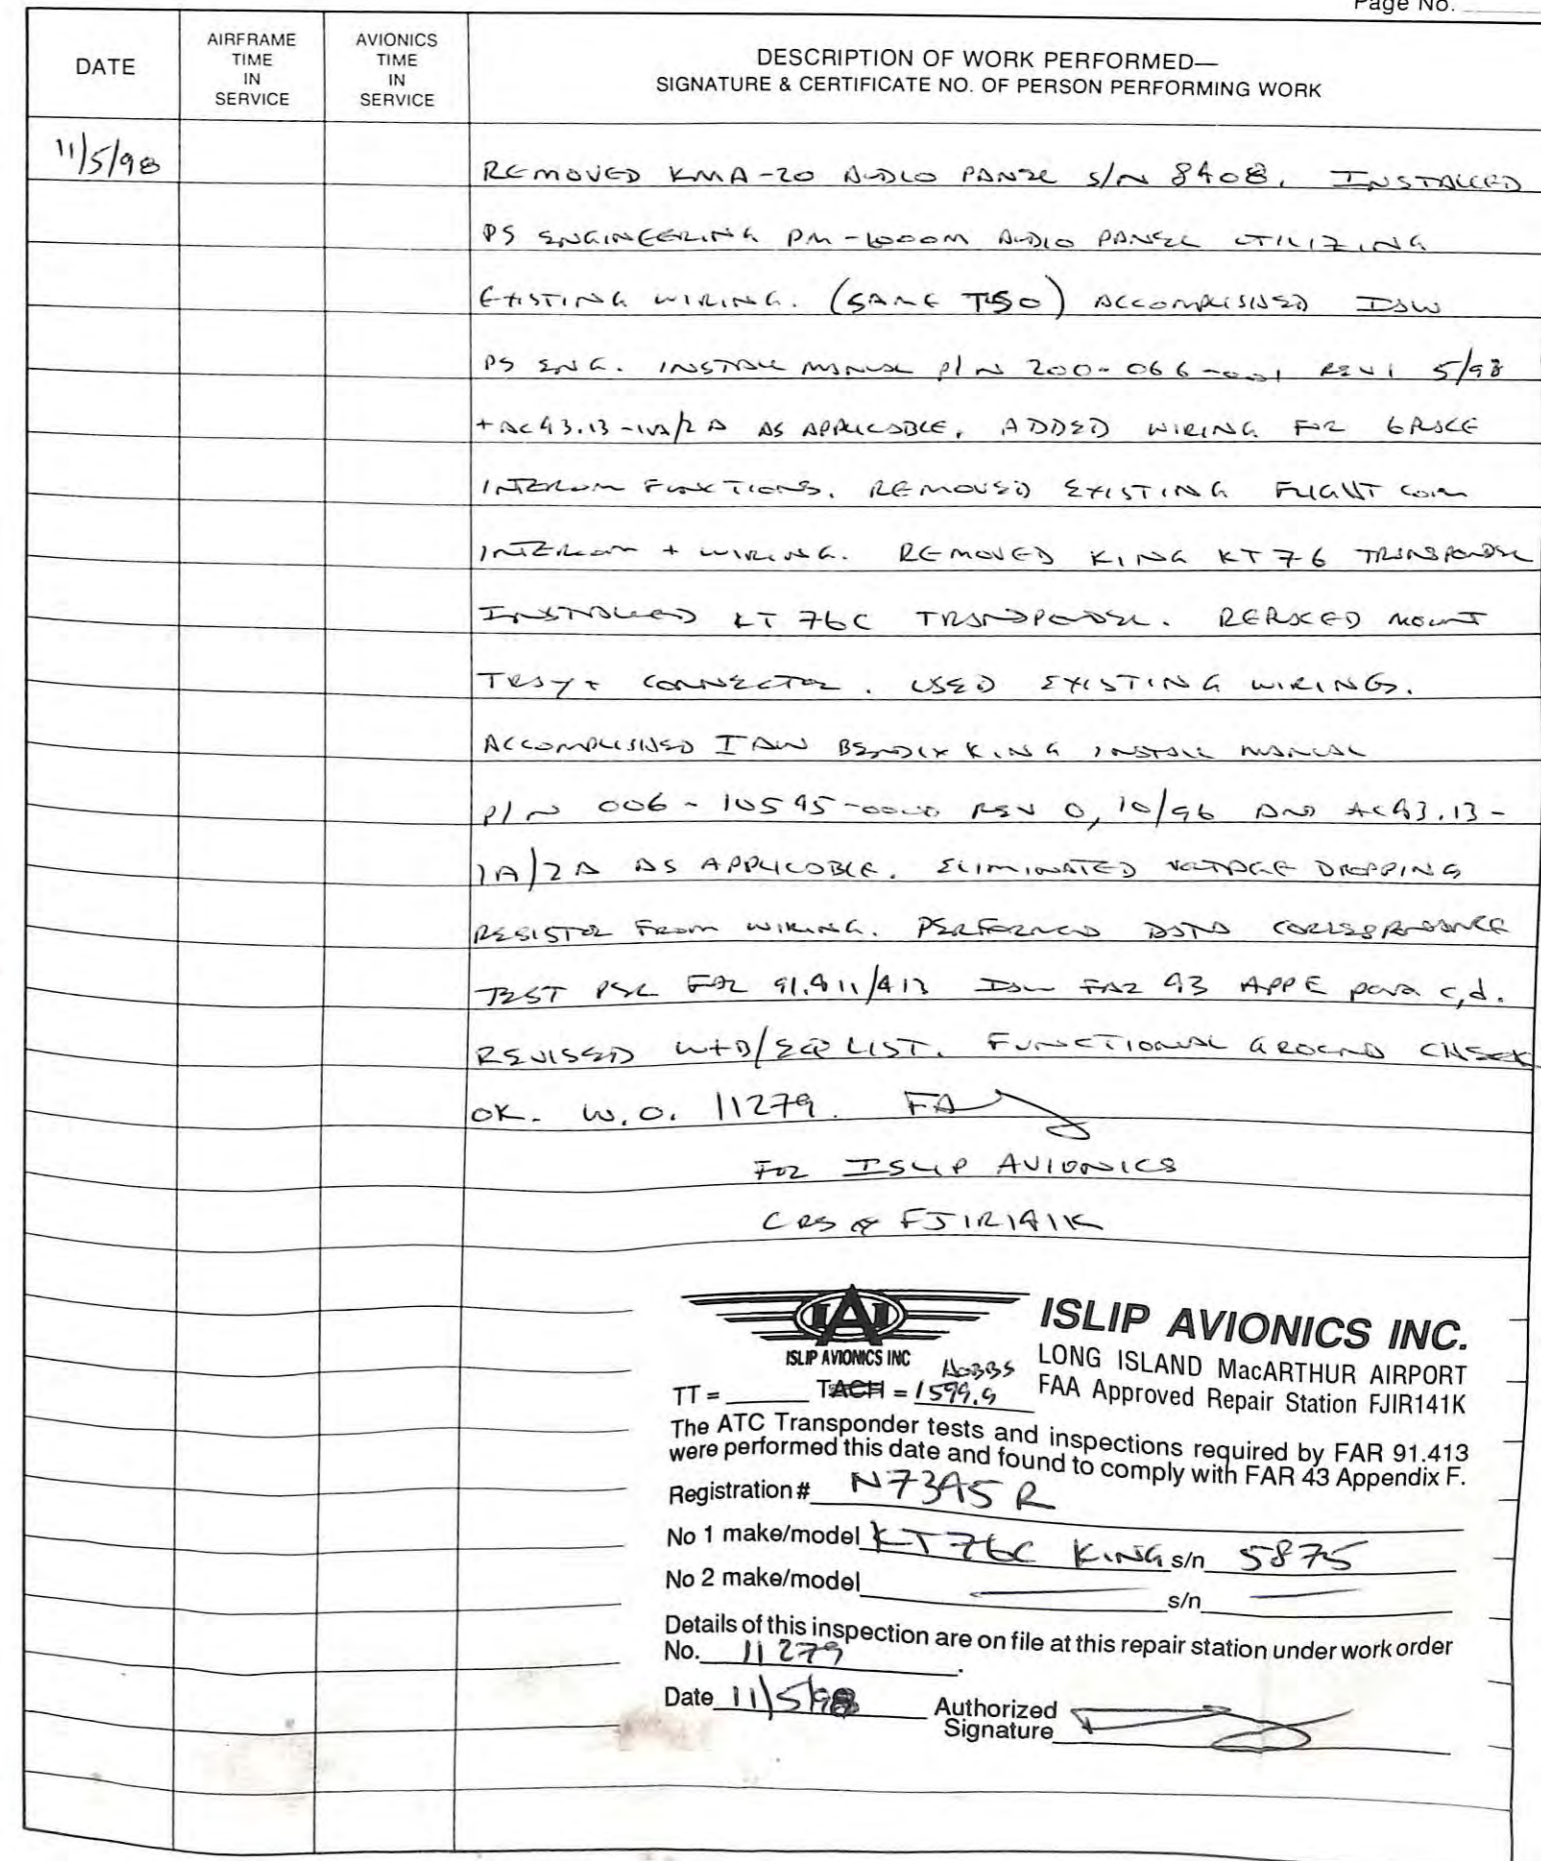 Page No.
DATE
AIRFRAME TIME IN SERVICE
AVIONICS TIME IN SERVICE
DESCRIPTION OF WORK PERFORMED—
SIGNATURE & CERTIFICATE NO. OF PERSON PERFORMING WORK
11/5/98
REMOVED KMA-20 AUDIO PANEL S/N 8408. INSTALLED
PS ENGINEERING PM-1000M AUDIO PANEL UTILIZING
EXISTING WIRING. (SAME TSO) ACCOMPLISHED IAW
PS ENG. INSTALL MANUAL P/N 200-066-001 REV 1 5/98
+ AC43.13-1A/2A AS APPLICABLE. ADDED WIRING FOR 6 PLACE
INTERCOM FUNCTIONS. REMOVED EXISTING FLIGHT COM
INTERCOM + WIRING. REMOVED KING KT76 TRANSPONDER
INSTALLED KT 76C TRANSPONDER. REPLACED MOUNT
TRAY + CONNECTOR. USED EXISTING WIRING.
ACCOMPLISHED IAW BENDIX KING INSTALL MANUAL
P/N 006-10595-0000 REV 0, 10/96 AND AC43.13-
1A/2A AS APPLICABLE. ELIMINATED VOLTAGE DROPPING
RESISTOR FROM WIRING. PERFORMED DATA CORRESPONDANCE
TEST PER FAR 91.411/413 IAW FAR 43 APP E para c,d.
REVISED W+B/EQ LIST. FUNCTIONAL GROUND CHECK
OK. W.O. 11279.
FOR ISLIP AVIONICS
CRS # FJIR141K
IAI
ISLIP AVIONICS INC
ISLIP AVIONICS INC.
LONG ISLAND MacARTHUR AIRPORT
FAA Approved Repair Station FJIR141K
HOBBS
TT = TACH = 1599.9
The ATC Transponder tests and inspections required by FAR 91.413
were performed this date and found to comply with FAR 43 Appendix F.
Registration # N7345R
No 1 make/model KT76C KING s/n 5875
No 2 make/model s/n
Details of this inspection are on file at this repair station under work order
No. 11279.
Date 11/5/98 Authorized
Signature